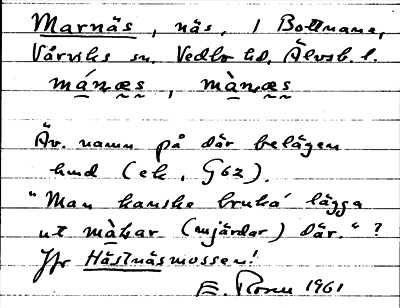 Marnäs, näs, i Bottnane,
Vårviks sn, Vedbo hd, Älvsb. l.
máṛnæs, màṛnæs
Äv. namn på där belägen
hmd (ek, G62).
"Man kanske bruka' lägga
ut màṛar (mjärdar) där." ?
Jfr Hästnäsmossen!
E. Rosen 1961